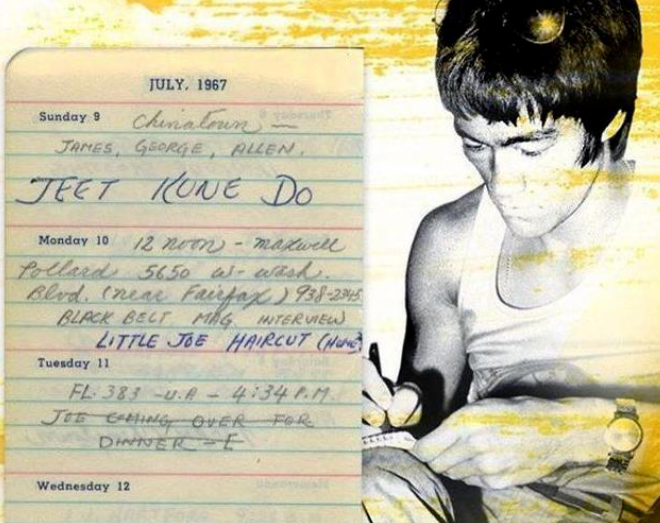 JULY, 1967
Sunday 9 Chinatown —
JAMES, GEORGE, ALLEN.
JEET KUNE DO
Monday 10 12 noon - maxwell
Pollard 5650 w- wash.
Blvd. (near Fairfax) 938-2345
BLACK BELT MAG INTERVIEW
LITTLE JOE HAIRCUT (HOME)
Tuesday 11
FL: 383 - U.A - 4:34 P.M.
JOE COMING OVER FOR
DINNER - E
Wednesday 12